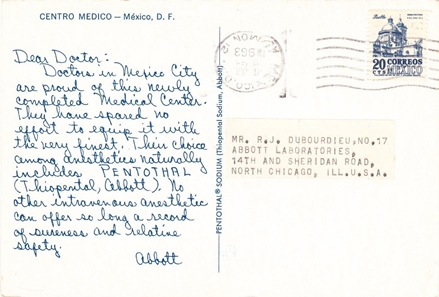 CENTRO MEDICO — México, D. F.
Dear Doctor:
Doctors in Mexico City
are proud of this newly
completed Medical Center.
They have spared no
effort to equip it with
the very finest. Their choice
among anesthetics naturally
includes PENTOTHAL
(Thiopental, Abbott). No
other intravenous anesthetic
can offer so long a record
of sureness and relative
safety.
Abbott
PENTOTHAL® SODIUM (Thiopental Sodium, Abbott)
1963
20 CORREOS
MEXICO
MR. R.J. DUBOURDIEU,NO.17
ABBOTT LABORATORIES,
14TH AND SHERIDAN ROAD,
NORTH CHICAGO, ILL.U.S.A.